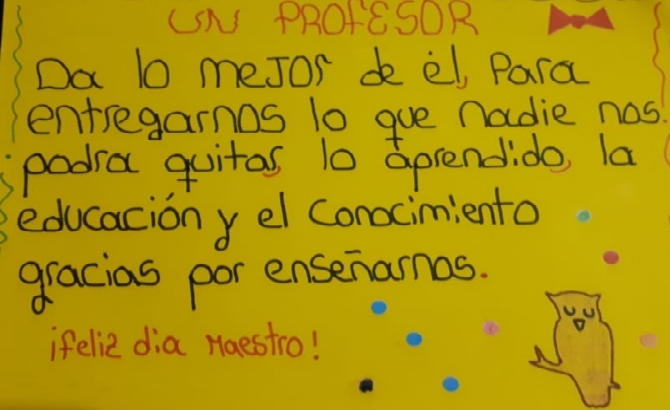 UN PROFESOR
Da lo mejor de él, para
entregarnos lo que nadie nos
podra quitar, lo aprendido, la
educación y el conocimiento
gracias por enseñarnos.
¡feliz dia Maestro!